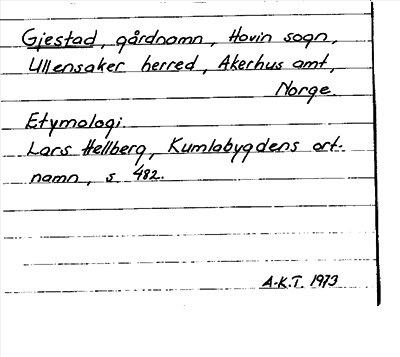 Gjestad, gårdnamn, Hovin sogn,
Ullensaker herred, Akerhus amt,
Norge.
Etymologi.
Lars Hellberg, Kumlabygdens ort-
namn, s 482.
A-K.T. 1973